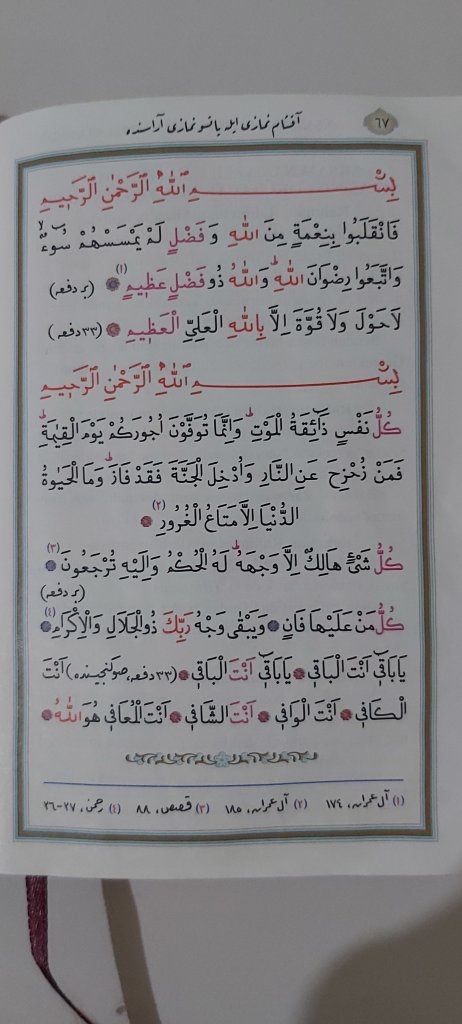 ٦٧
آقشام نمازى ايله ياتسو نمازى آراسنده
بِسْمِ اللّٰهِ الرَّحْمٰنِ الرَّحِيمِ
فَانْقَلَبُوا بِنِعْمَةٍ مِنَ اللّٰهِ وَفَضْلٍ لَمْ يَمْسَسْهُمْ سُوءٌ
وَاتَّبَعُوا رِضْوَانَ اللّٰهِ وَاللّٰهُ ذُو فَضْلٍ عَظِيمٍ (١) (بر دفعه)
لَاحَوْلَ وَلَا قُوَّةَ اِلَّا بِاللّٰهِ الْعَلِيِّ الْعَظِيمِ (٣٣ دفعه)
بِسْمِ اللّٰهِ الرَّحْمٰنِ الرَّحِيمِ
كُلُّ نَفْسٍ ذَآئِقَةُ الْمَوْتِ وَاِنَّمَا تُوَفَّوْنَ اُجُورَكُمْ يَوْمَ الْقِيٰمَةِ
فَمَنْ زُحْزِحَ عَنِ النَّارِ وَاُدْخِلَ الْجَنَّةَ فَقَدْ فَازَ وَمَا الْحَيٰوةُ
الدُّنْيَا اِلَّا مَتَاعُ الْغُرُورِ (٢)
كُلُّ شَيْءٍ هَالِكٌ اِلَّا وَجْهَهُ لَهُ الْحُكْمُ وَاِلَيْهِ تُرْجَعُونَ (٣)
(بر دفعه)
كُلُّ مَنْ عَلَيْهَا فَانٍ وَيَبْقٰى وَجْهُ رَبِّكَ ذُو الْجَلَالِ وَالْاِكْرَامِ (٤)
يَا بَاقِي اَنْتَ الْبَاقِي يَا بَاقِي اَنْتَ الْبَاقِي (٣٣ دفعه، صوكنجيسنده) اَنْتَ
الْكَافِي اَنْتَ الْوَافِي اَنْتَ الشَّافِي اَنْتَ الْمُعَافِي هُوَ اللّٰهُ
(١) آل عمران، ١٧٤ (٢) آل عمران، ١٨٥ (٣) قصص، ٨٨ (٤) رحمن، ٢٧-٢٦